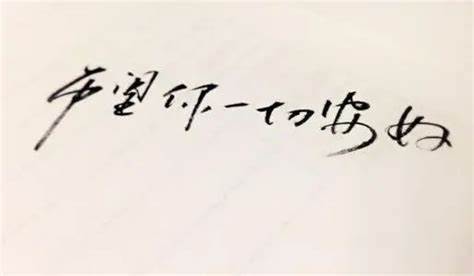 希望你一切安好